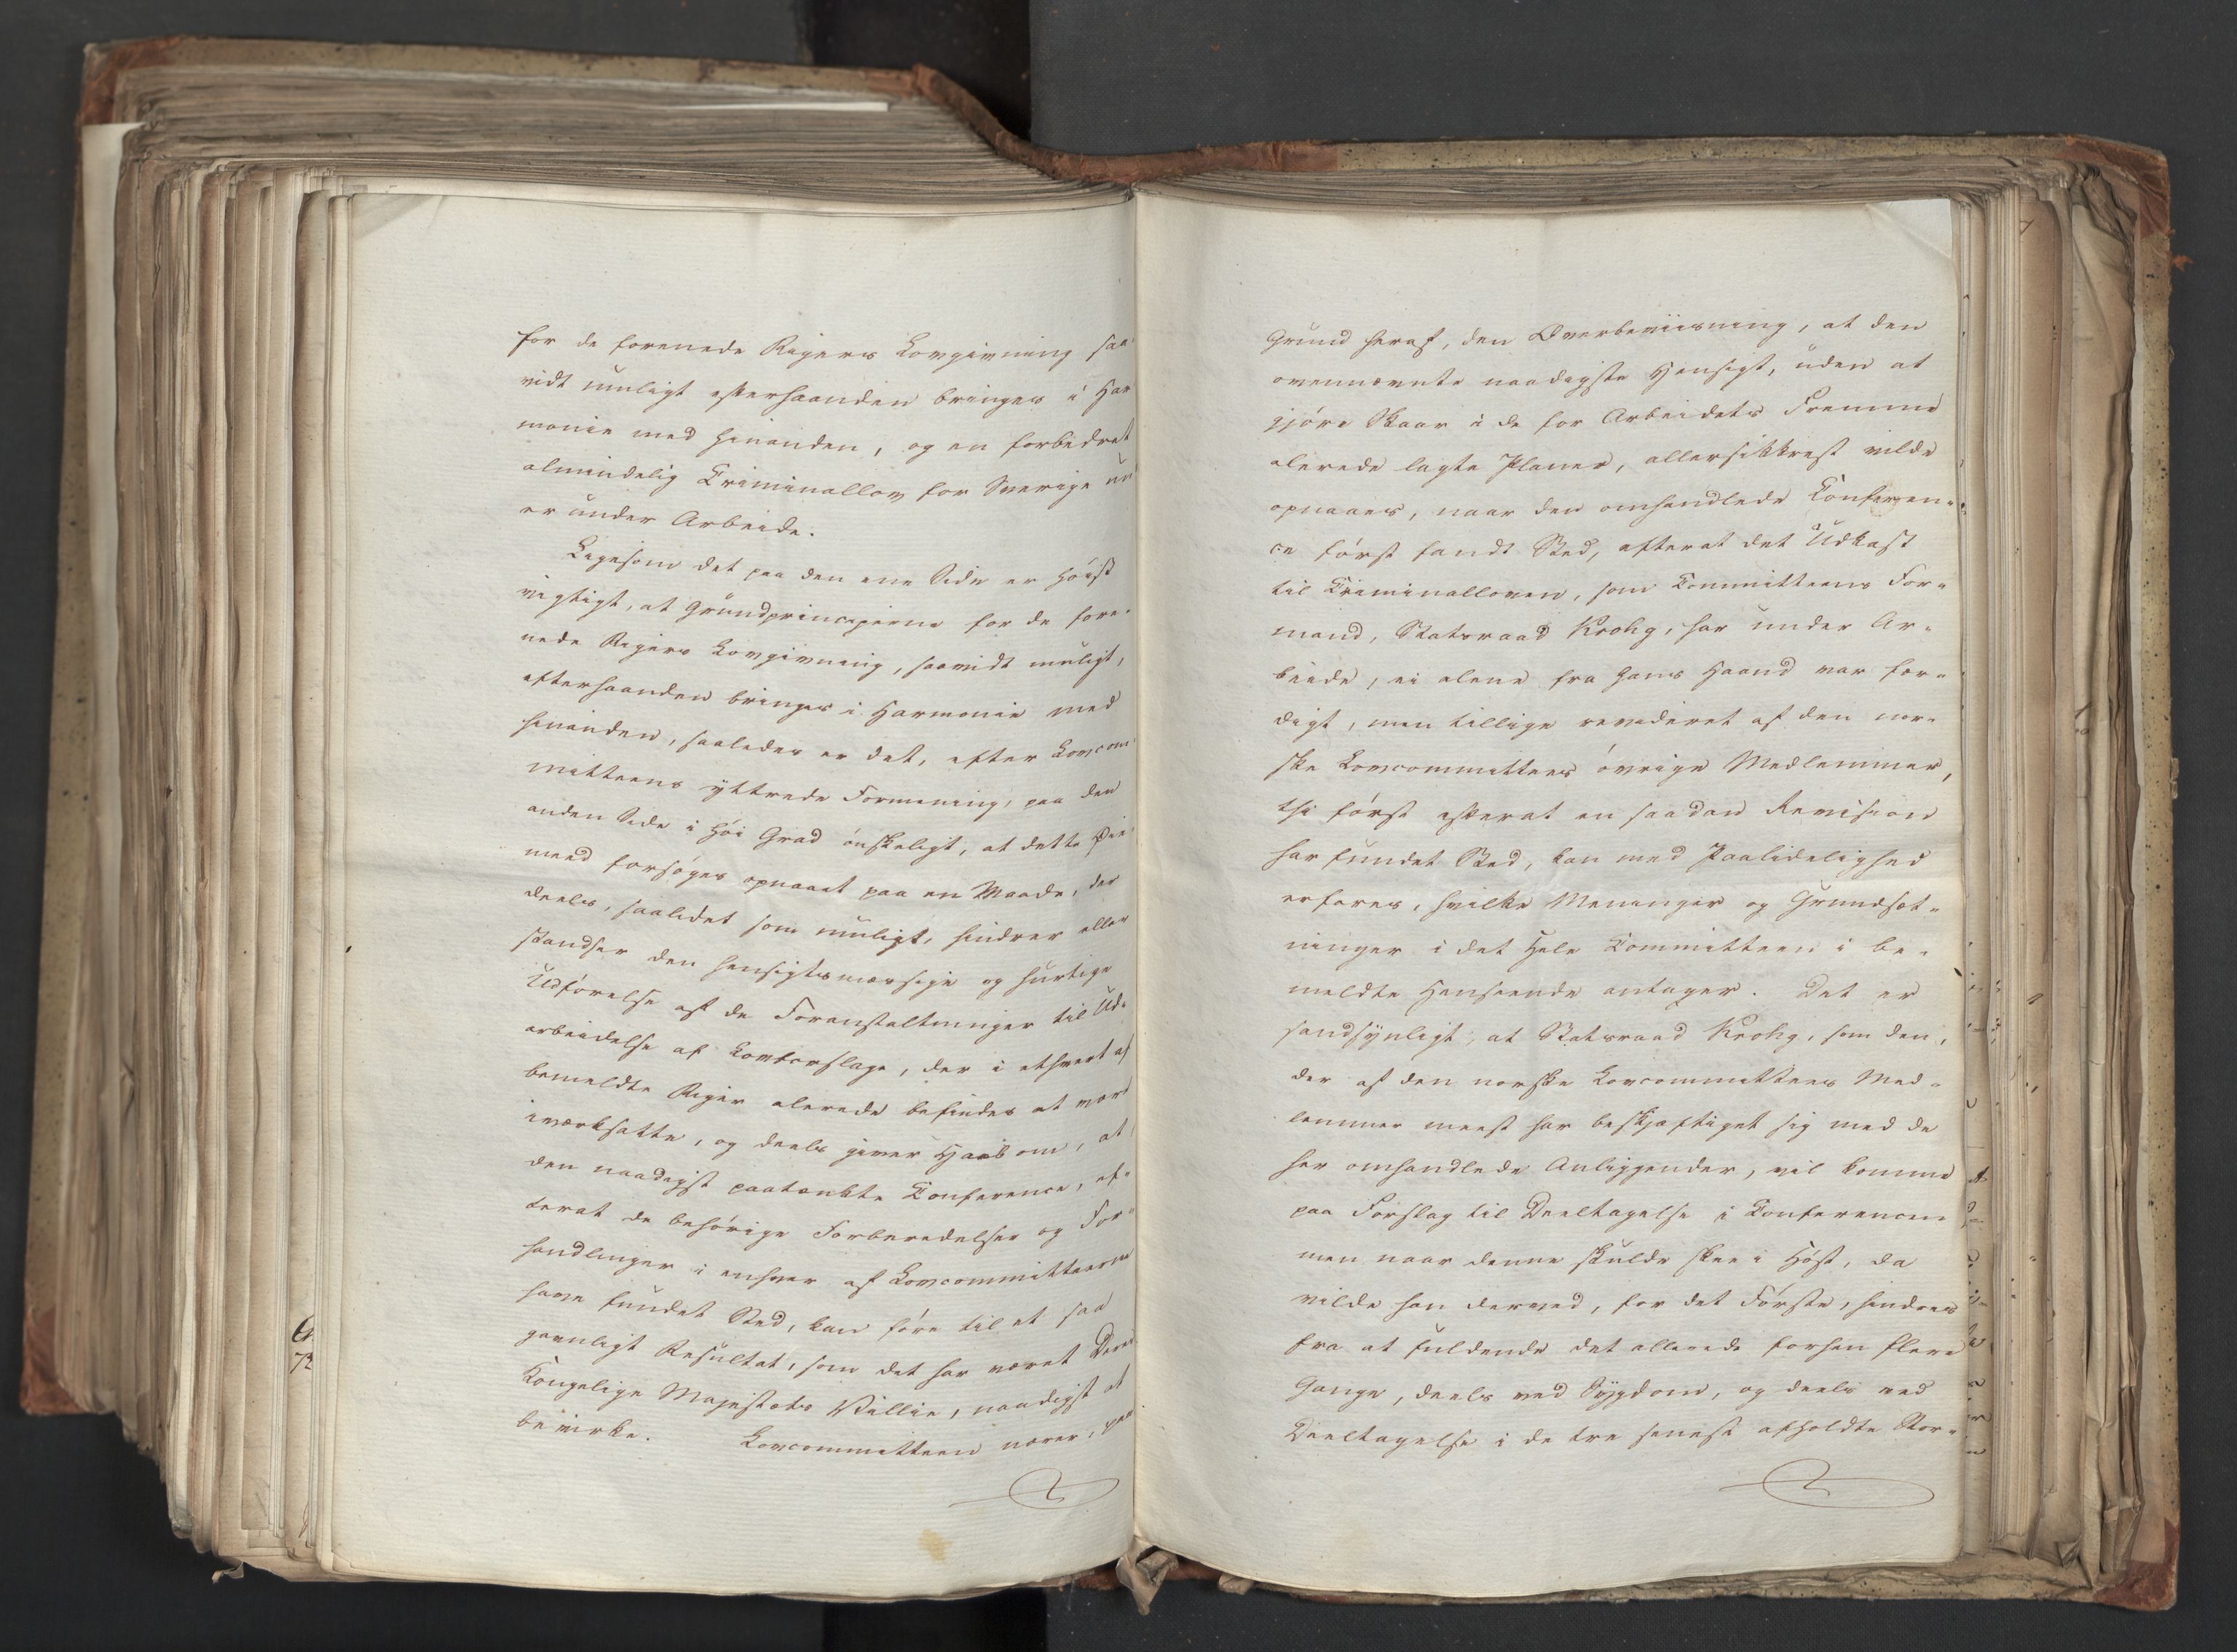 for de forenede Rigers Lovgivning saa-
vidt muligt efterhaanden bringes i Har
monie med hinanden, og en forbedret
almindelig Criminallov for Sverige nu
er under Arbeide.
Ligesom det paa den ene Side er høist
vigtigt, at Grundprinciperne for de fore-
nede Rigers Lovgivning, saavidt muligt,
efterhaanden bringes i Harmonie med
hinanden, saaledes er det, efter Lovcom-
mitteens yttrede Formening, paa den
anden Side i høi Grad ønskeligt, at dette Øie-
meed forsøges opnaaet paa en Maade, der
deels, saalidet som muligt, hindrer eller
standser den hensigtsmæssige og hurtige
Udførelse af de Foranstaltninger til Ud-
arbeidelse af Lovforslage, der i ethvert af
bemeldte Riger alerede befindes at være
iværksatte, og deels giver Haab om, at
den naadigst paatænkte Conference, ef-
terat de behørige Forberedelser og For-
handlinger i enhver af Lovcommitteerne
have fundet Sted, kan føre til et saa
gavnligt Resultat, som det har været Deres
Kongelige Majestæts Villie, naadigst at
bevirke. Lovcommitteen nærer, paa
Grund heraf, den Overbeviisning, at den
ovennævnte naadigste Hensigt, uden at
gjøre Skaar i de for Arbeidets Fremme
alerede lagte Planer, allersikkrest vilde
opnaaes, naar den omhandlede Conferen-
ce først fandt Sted, efterat det Udkast
til Criminalloven, som Committeens For-
mand, Statsraad Krohg, har under Ar-
beide, ei alene fra hans Haand var fær-
digt, men tillige revideret af den nor-
ske Lovcommittees øvrige Medlemmer,
thi først efterat en saadan Revision
har fundet Sted, kan med Paalidelighed
erfares, hvilke Meninger og Grundsæt-
ninger i det Hele Committeen i be-
meldte Henseende antager. Det er
sandsynligt, at Statsraad Krohg, som den,
der af den norske Lovcommittees Med-
lemmer meest har beskjæftiget sig med de
her omhandlede Anliggender, vil komme
paa Forslag til Deeltagelse i Conferencen
men naar denne skulde skee i Høst, da
vilde han derved, for det Første, hindres
fra at fuldende det allerede forhen flere
Gange, deels ved Sygdom, og deels ved
Deeltagelse i de tre senest afholdte Stor-